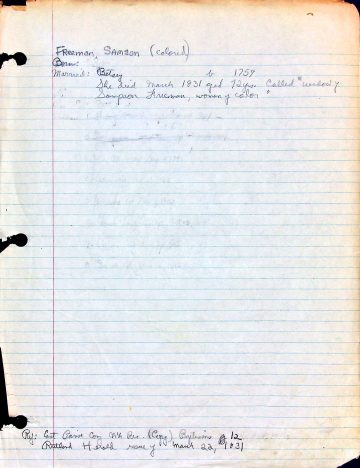 FREEMAN, SAMSON (colored)
Born:
Married: Betsy b 1759
She died March 1831 aged 72 yrs. Called "widow of
Sampson Freeman, woman of color"
Ref: Cong (Copy) p 12
Rutland Herald March 22, 1831